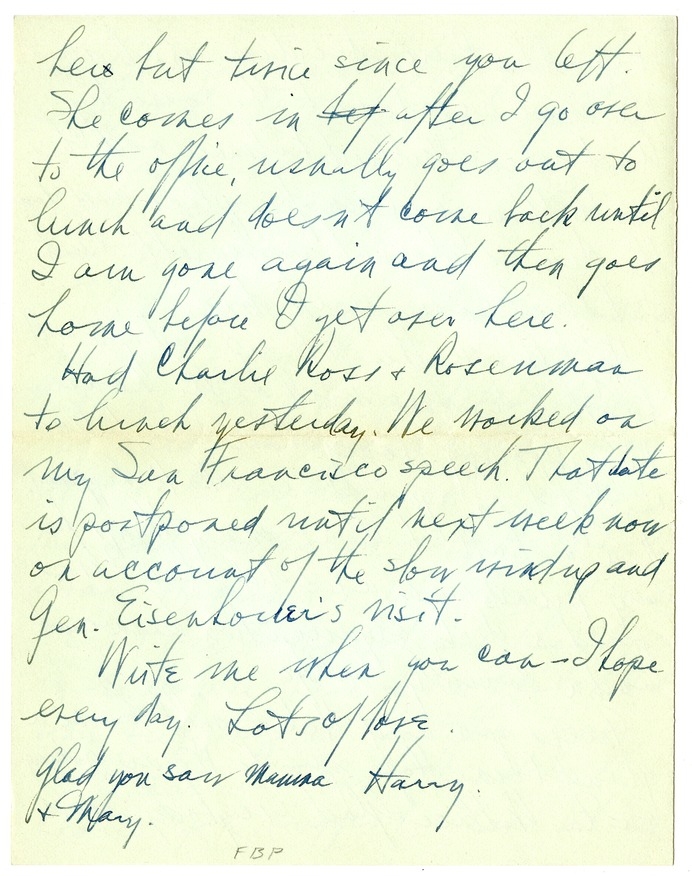 her but twice since you left.
She comes in bef after I go over
to the office, usually goes out to
lunch and doesn't come back until
I am gone again and then goes
home before I get over here.
Had Charlie Ross & Rosenman
to lunch yesterday. We worked on
my San Francisco speech. That date
is postponed until next week now
on account of the slow windup and
Gen. Eisenhower's visit.
Write me when you can - I hope
every day. Lots of love.
Glad you saw Mamma Harry.
& Mary.
FBP